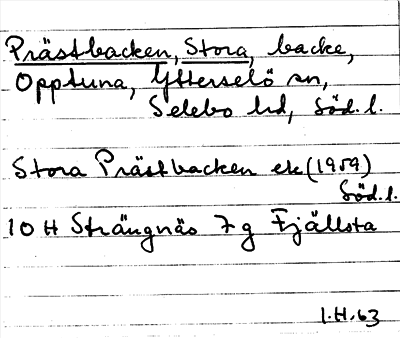 Prästbacken, Stora, backe,
Opptuna, Ytterselö sn,
Selebo hd, Söd. l.
Stora Prästbacken ek (1959)
Söd. l.
10 H Strängnäs 7 g Fjällsta
I.H. 63